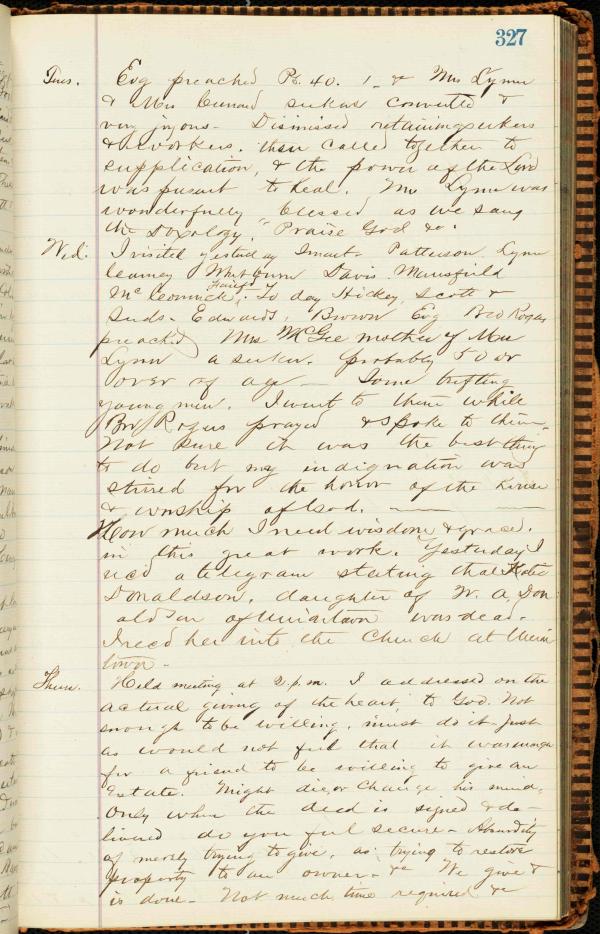 327
Tues. Evg preached Ps. 40. 1_ & Mrs Lynn
& Mrs seekers converted &
very joyous - Dismissed retaining seekers
& workers. then called together to
supplication, & the power of the Lord
was present to heal. Mr Lynn was
wonderfully blessed as we sang
the Doxology. "Praise God &c.
Wed. I visited yesterday Smart Patterson Lynn
Whitburn Davis Mansfield
McCormick. To day Hickey, Scott &
Edwards, Brown Evg Bro Rogers
preached Mrs McGee mother of Mrs
Lynn a seeker. probably 50 or
over of age - Some trifling
young men. I went to them while
Bro Rogers prayed & spoke to them -
Not sure it was the best thing
to do but my indignation was
stirred for the honor of the house
& worship of God. —
How much I need wisdom & grace.
in this great work. Yesterday I
recd a telegram stating that Katie
Donaldson, daughter of W. A. Don
aldson of Uniontown was dead.
I recd her into the Church at Union
town -
Thurs. Held meeting at 2 p.m. I addressed on the
actual giving of the heart to God. Not
enough to be willing, must do it just
as would not feel that it was enough
for a friend to be willing to give an
Estate. Might die or change his mind.
Only when the deed is signed & de-
livered do you feel secure - Absurdity
of merely trying to give, as trying to restore
property to an owner - &c We give &
is done - Not much time required &